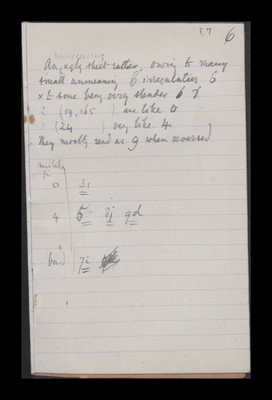 F.7 6
unmeaning
An ugly sheet rather, owing to many
small unmeaning 6 irregularities 6
& to some being very slender 6 6
2 (59, 165 ) are like 0
1 (24 ) very like 4
They mostly read as 9 when reversed
mistakes
for
0 31
4 5 3j 9d
bad 7i